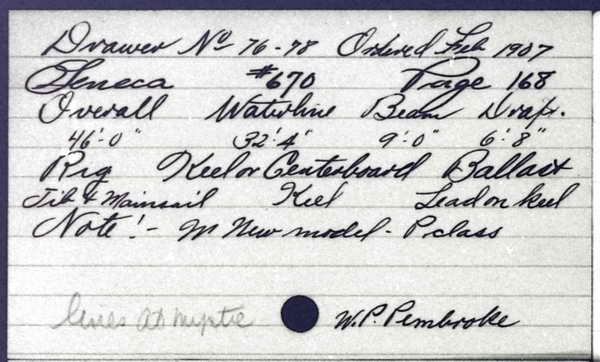 Drawer No 76-78 Ordered Feb 1907
Seneca #670 Page 168
Overall Waterline Beam Draft.
46'-0" 32'-4" 9'-0" 6'-8"
Rig Keel or Centerboard Ballast
Jib & Mainsail Keel Lead on keel
Note!- M New model - P class
lines at Mystic W.P. Pembroke